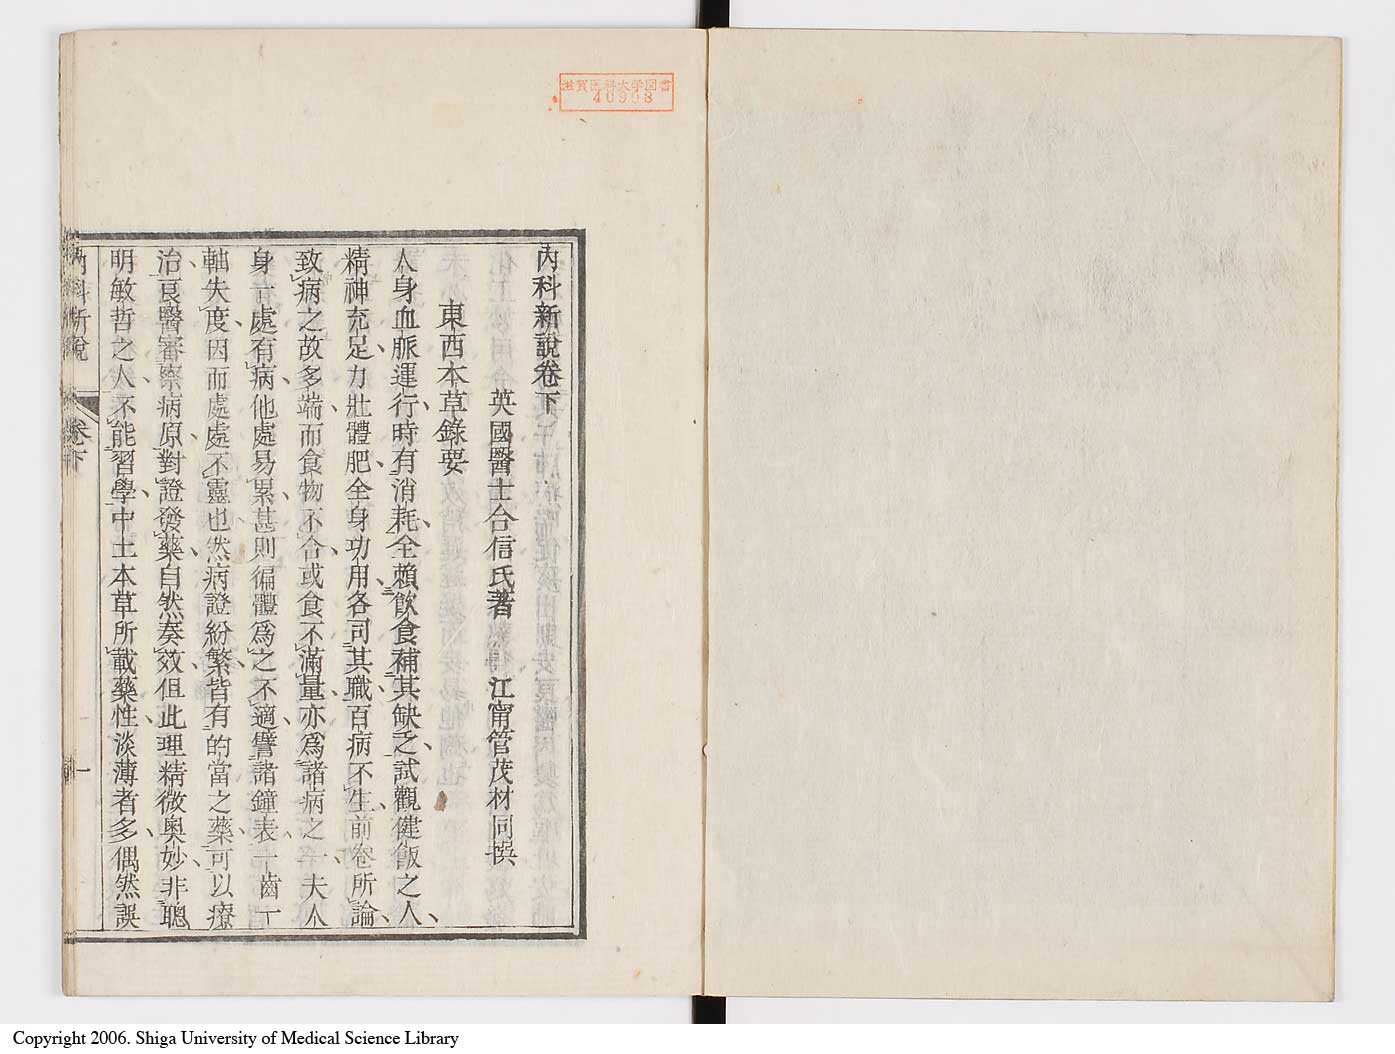 滋賀医科大学図書
40908
內科新說卷下
英國醫士合信氏著 江甯管茂材同撰
東西本草錄要
人身血脈運行時有消耗全賴飲食補其缺乏試觀健飯之人
精神充足力壯體肥全身功用各司其職百病不生前卷所論
致病之故多端而食物不合或食不滿量亦爲諸病之一夫人
身一處有病他處易累甚則徧體爲之不適譬諸鐘表一齒一
軸失度因而處處不靈也然病證紛繁皆有的當之藥可以療
治良醫審察病原對證發藥自然奏效但此理精微奧妙非聰
明敏哲之人不能習學中土本草所載藥性淡薄者多偶然誤
內科新說 卷下 一
Copyright 2006. Shiga University of Medical Science Library